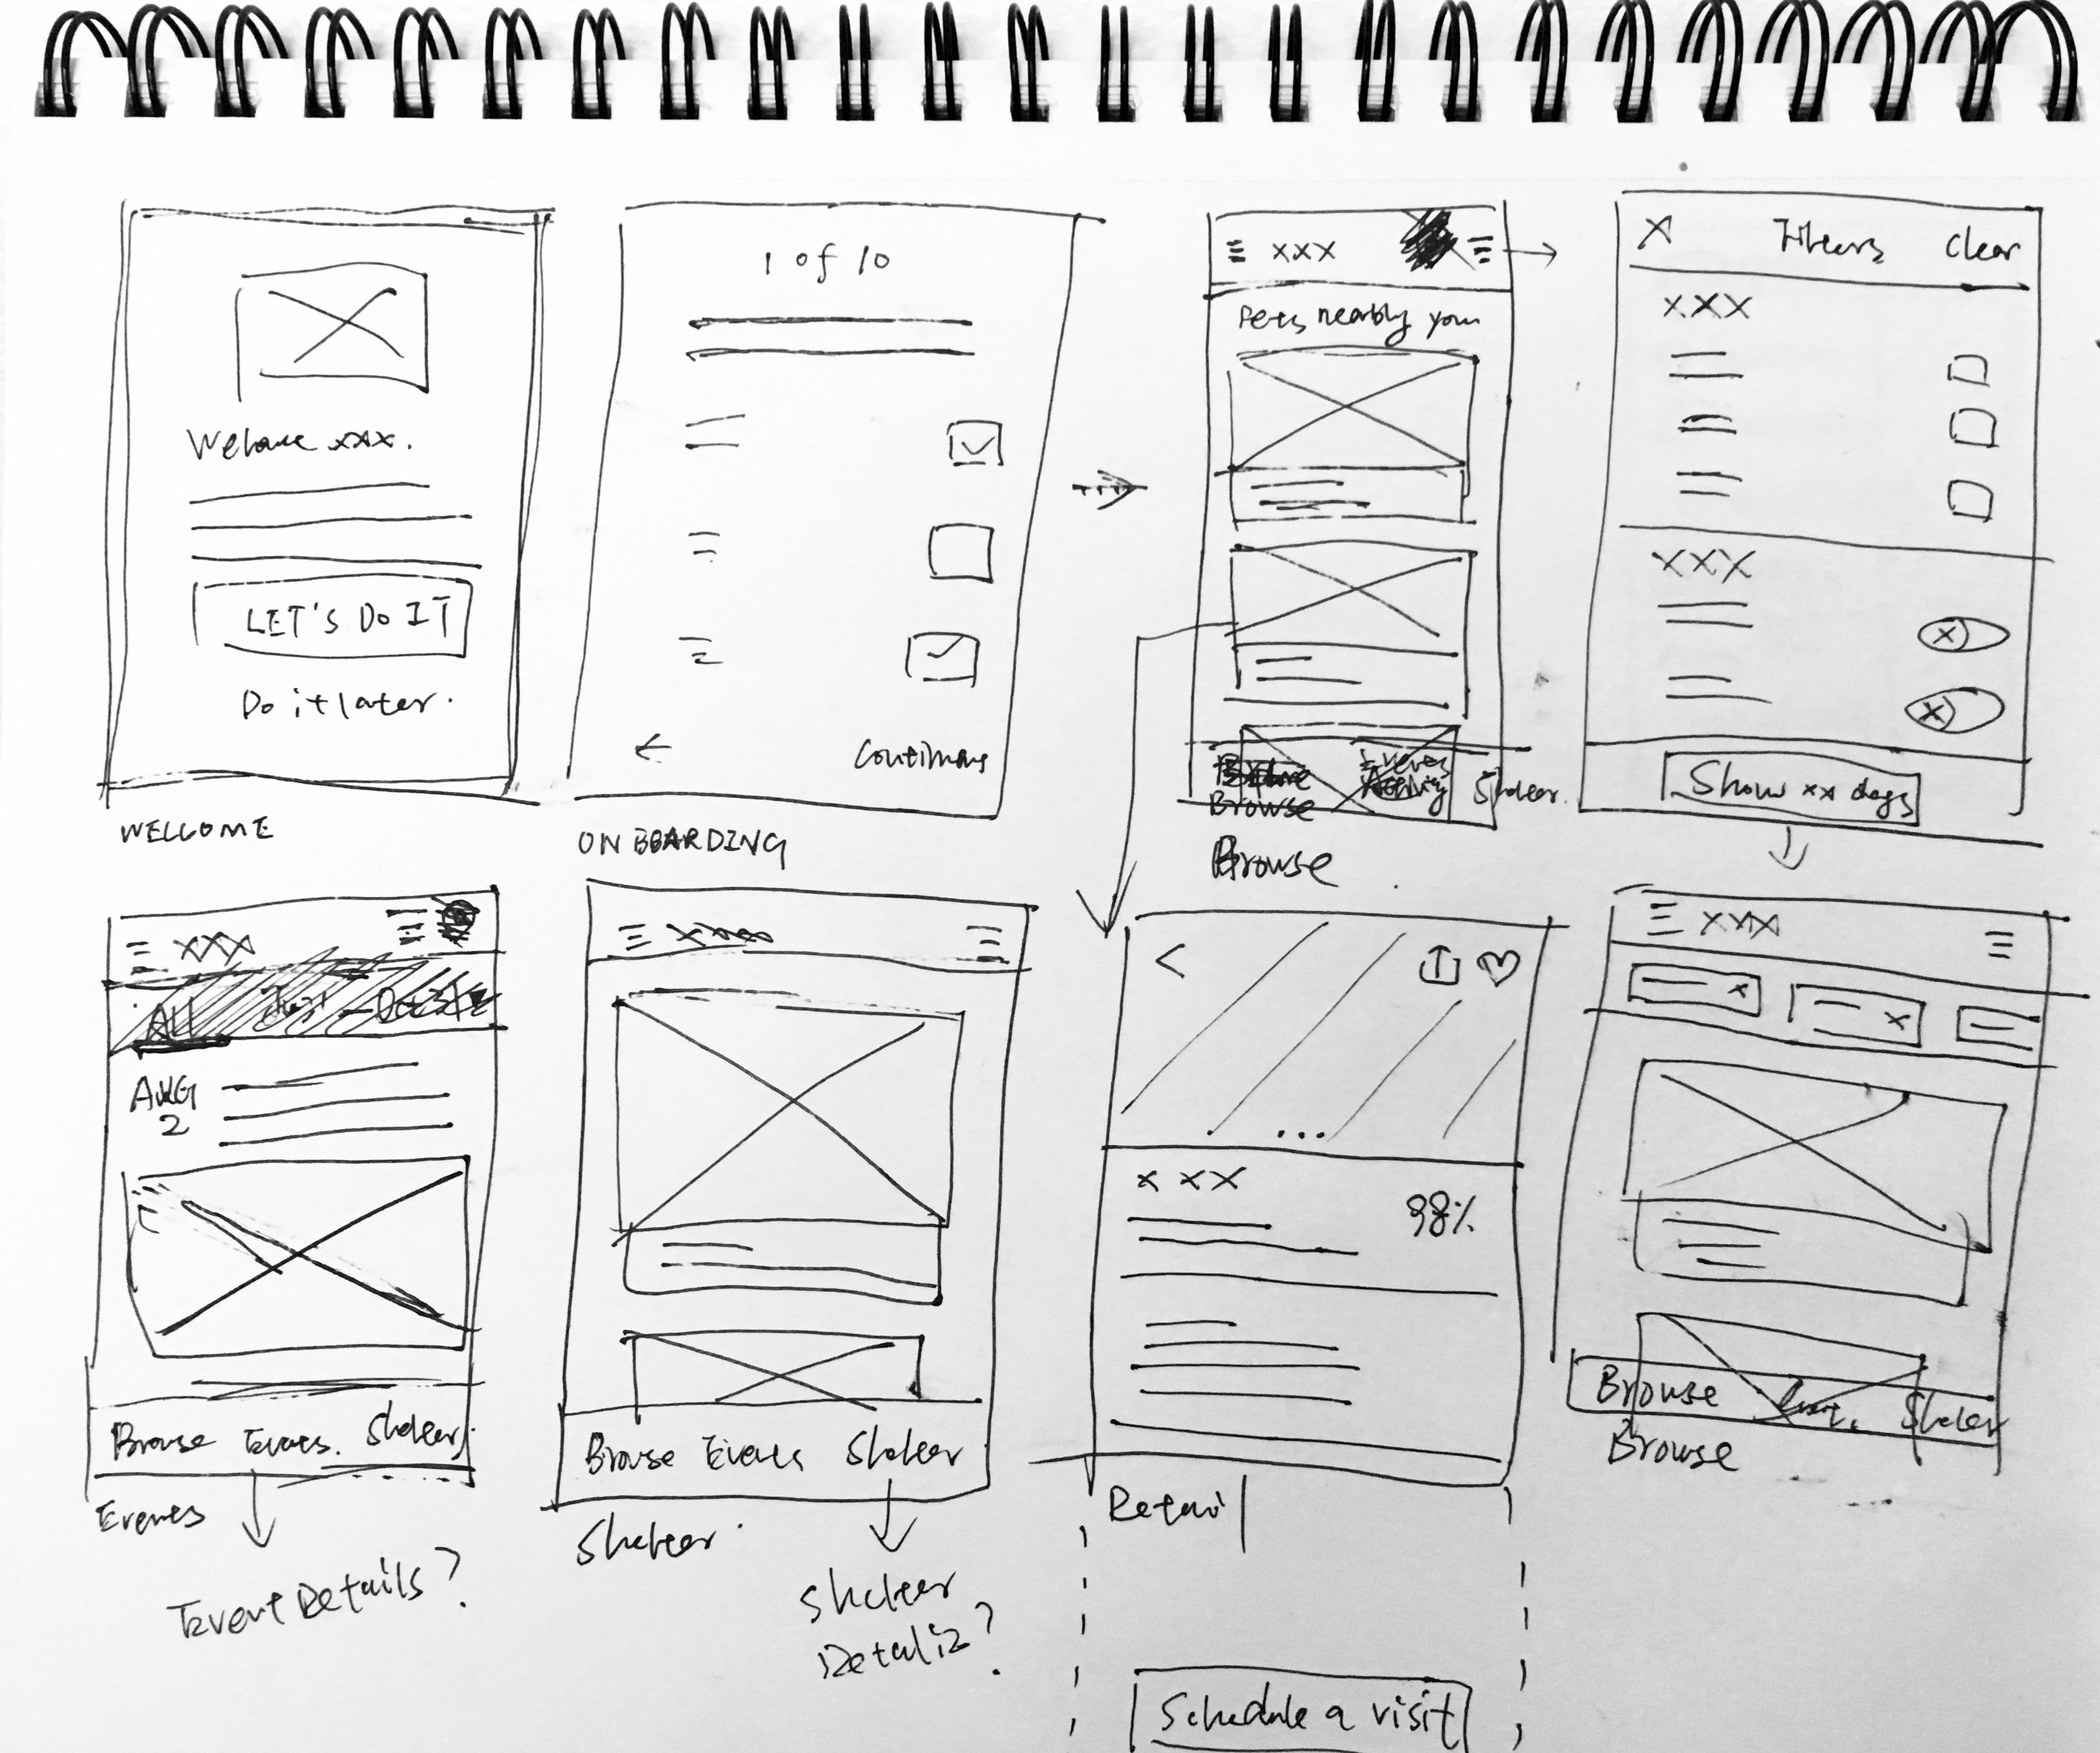 Welcome xxx.
LET'S DO IT
Do it later.
WELCOME
1 of 10
Continue
ONBOARDING
xxx
Pets nearby you
Browse
Shelter
Browse
X Filters Clear
XXX
XXX
Show xx dogs
XXX
ALL
AUG
2
Browse Events Shelter
Events
Event Details?
Browse Events Shelter
Shelter
Shelter
Details?
x xx
98%
Detail
Schedule a visit
XXX
Browse Shelter
Browse